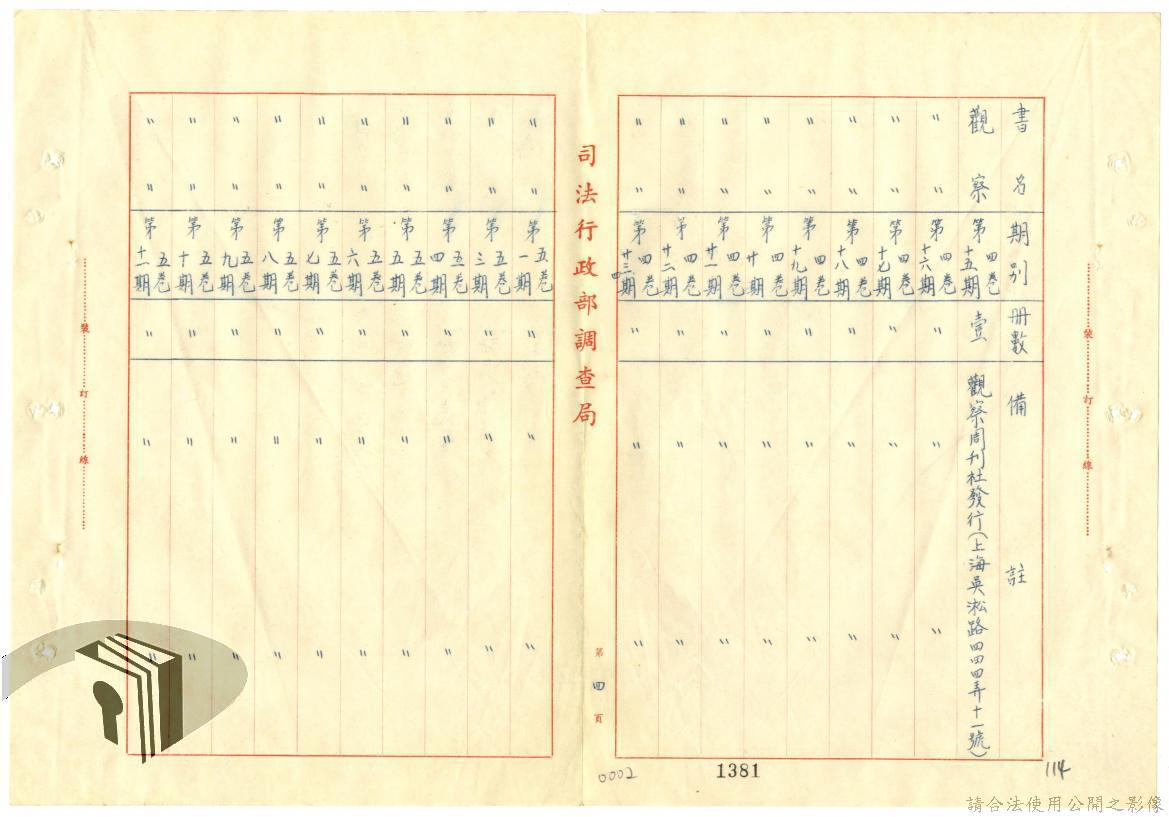 書名 期別 冊數 備註
觀察 第四卷十五期 壹 觀察周刊社發行(上海吳淞路四四四弄十一號)
〃 〃 第四卷十六期 〃 〃 〃
〃 〃 第四卷十七期 〃 〃 〃
〃 〃 第四卷十八期 〃 〃 〃
〃 〃 第四卷十九期 〃 〃 〃
〃 〃 第四卷廿期 〃 〃 〃
〃 〃 第四卷廿一期 〃 〃 〃
〃 〃 第四卷廿二期 〃 〃 〃
〃 〃 第四卷廿三四期 〃 〃 〃
司法行政部調查局
第四頁
〃 〃 第五卷一期 〃 〃 〃
〃 〃 第五卷三期 〃 〃 〃
〃 〃 第五卷四期 〃 〃 〃
〃 〃 第五卷五期 〃 〃 〃
〃 〃 第五卷六期 〃 〃 〃
〃 〃 第五卷七期 〃 〃 〃
〃 〃 第五卷八期 〃 〃 〃
〃 〃 第五卷九期 〃 〃 〃
〃 〃 第五卷十期 〃 〃 〃
〃 〃 第五卷十一期 〃 〃 〃
裝訂線
裝訂線
0002
1381
114
請合法使用公開之影像